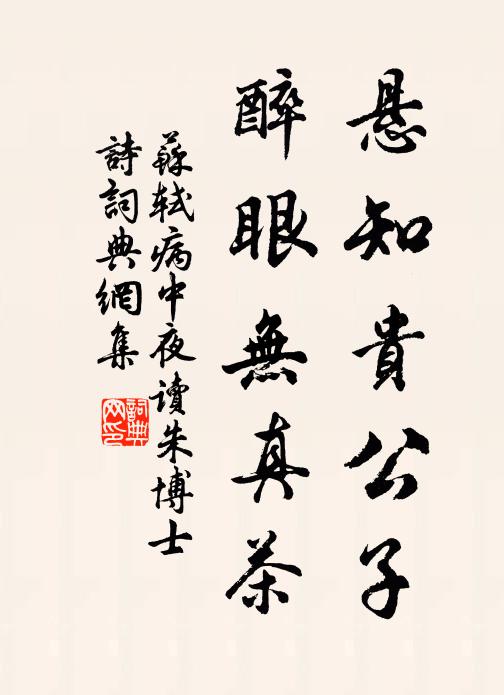 悬知貴公子
醉眼無真茶
蘇軾病中夜讀朱博士
詩詞典網集
詞典网印